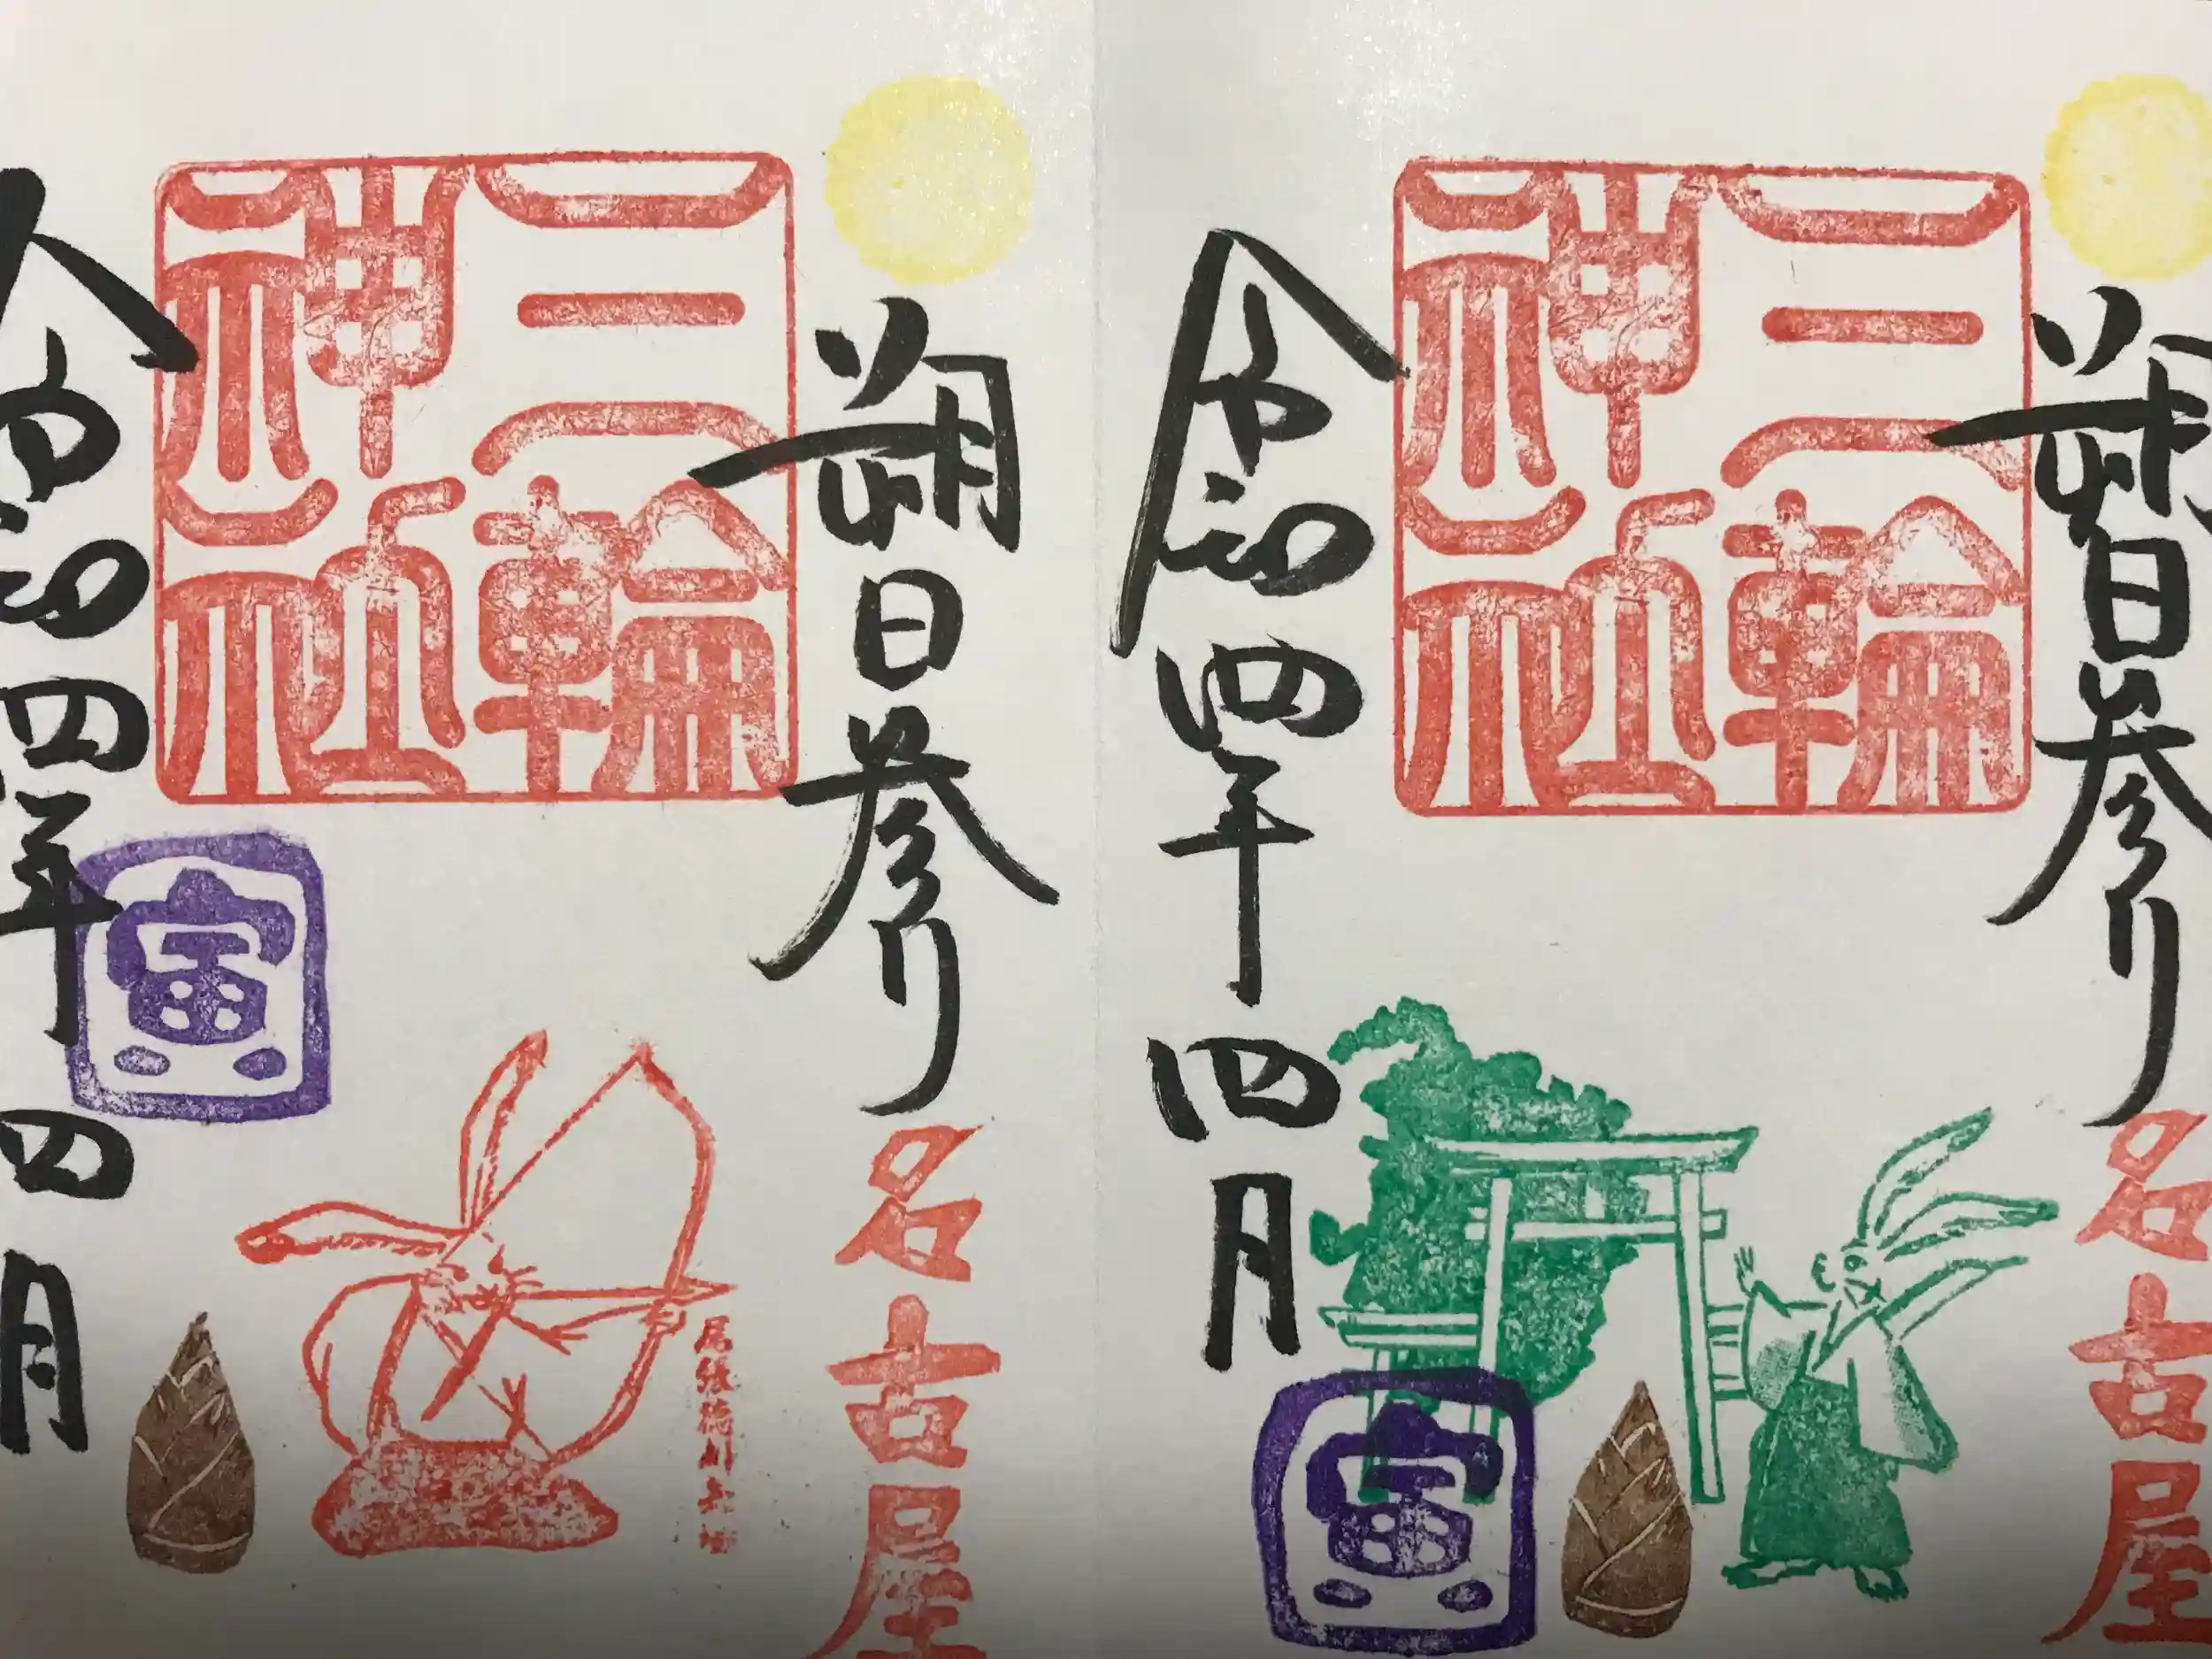 朔日参り
名古屋
三輪
神社
令和四年四月
寅
朔日参り
名古屋
三輪
神社
尾張徳川
令和四年四月
寅